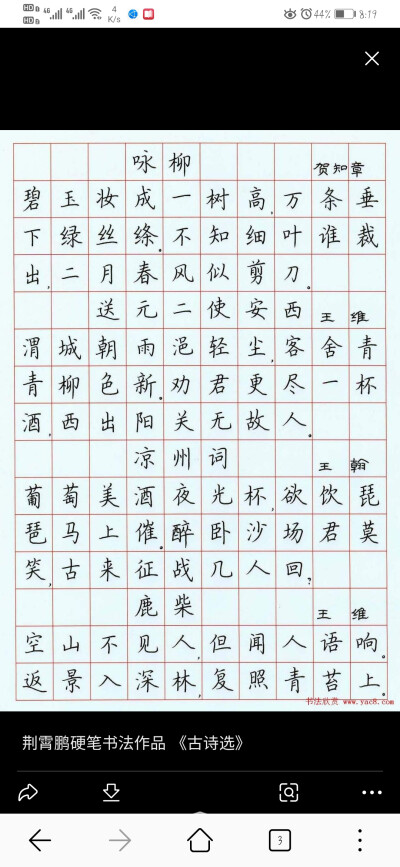 4G 4G 4 K/s 44% 8:19
咏柳 贺知章
碧玉妆成一树高,万条垂
下绿丝绦。不知细叶谁裁
出,二月春风似剪刀。
送元二使安西 王维
渭城朝雨浥轻尘,客舍青
青柳色新。劝君更尽一杯
酒,西出阳关无故人。
凉州词 王翰
葡萄美酒夜光杯,欲饮琵
琶马上催。醉卧沙场君莫
笑,古来征战几人回?
鹿柴 王维
空山不见人,但闻人语响。
返景入深林,复照青苔上。
书法欣赏 www.yac8.com
荆霄鹏硬笔书法作品 《古诗选》
3